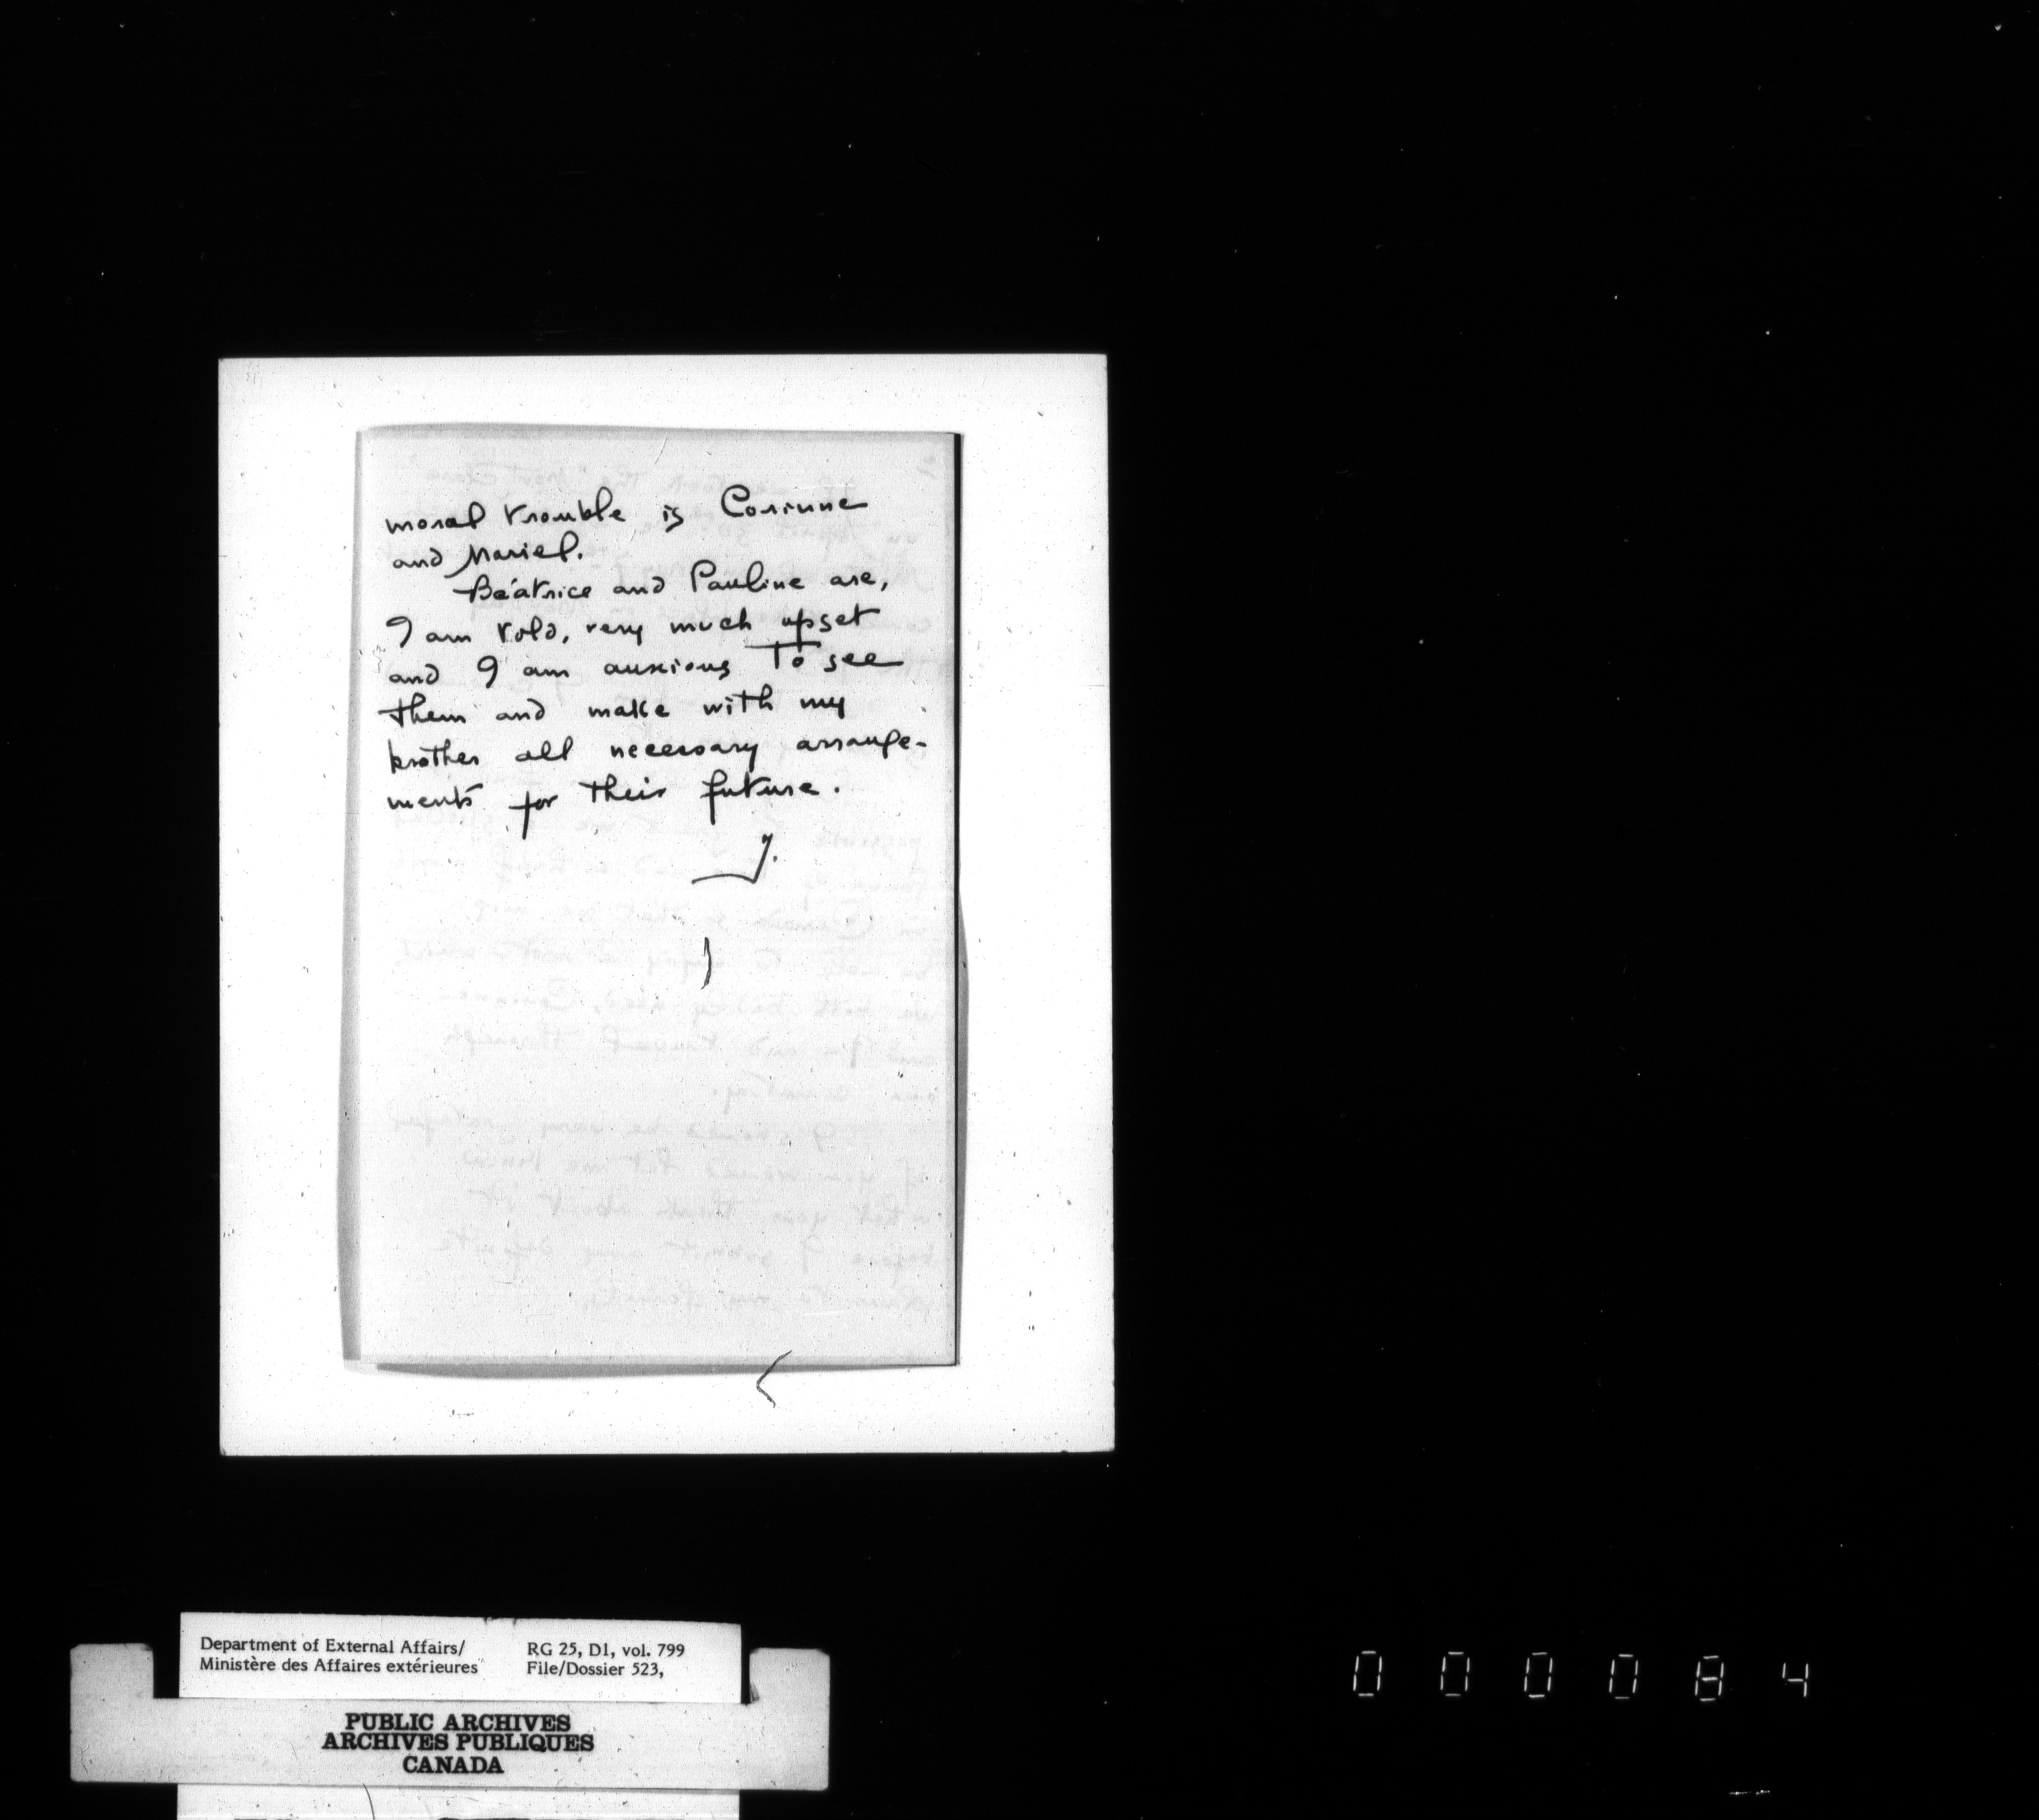 moral trouble is Corinne
and Mariel.
Béatrice and Pauline are,
I am told, very much upset
and I am anxious to see
them and make with my
brother all necessary arrange-
ments for their future.
J.
Department of External Affairs/
Ministère des Affaires extérieures
RG 25, D1, vol. 799
File/Dossier 523,
PUBLIC ARCHIVES
ARCHIVES PUBLIQUES
CANADA
000084